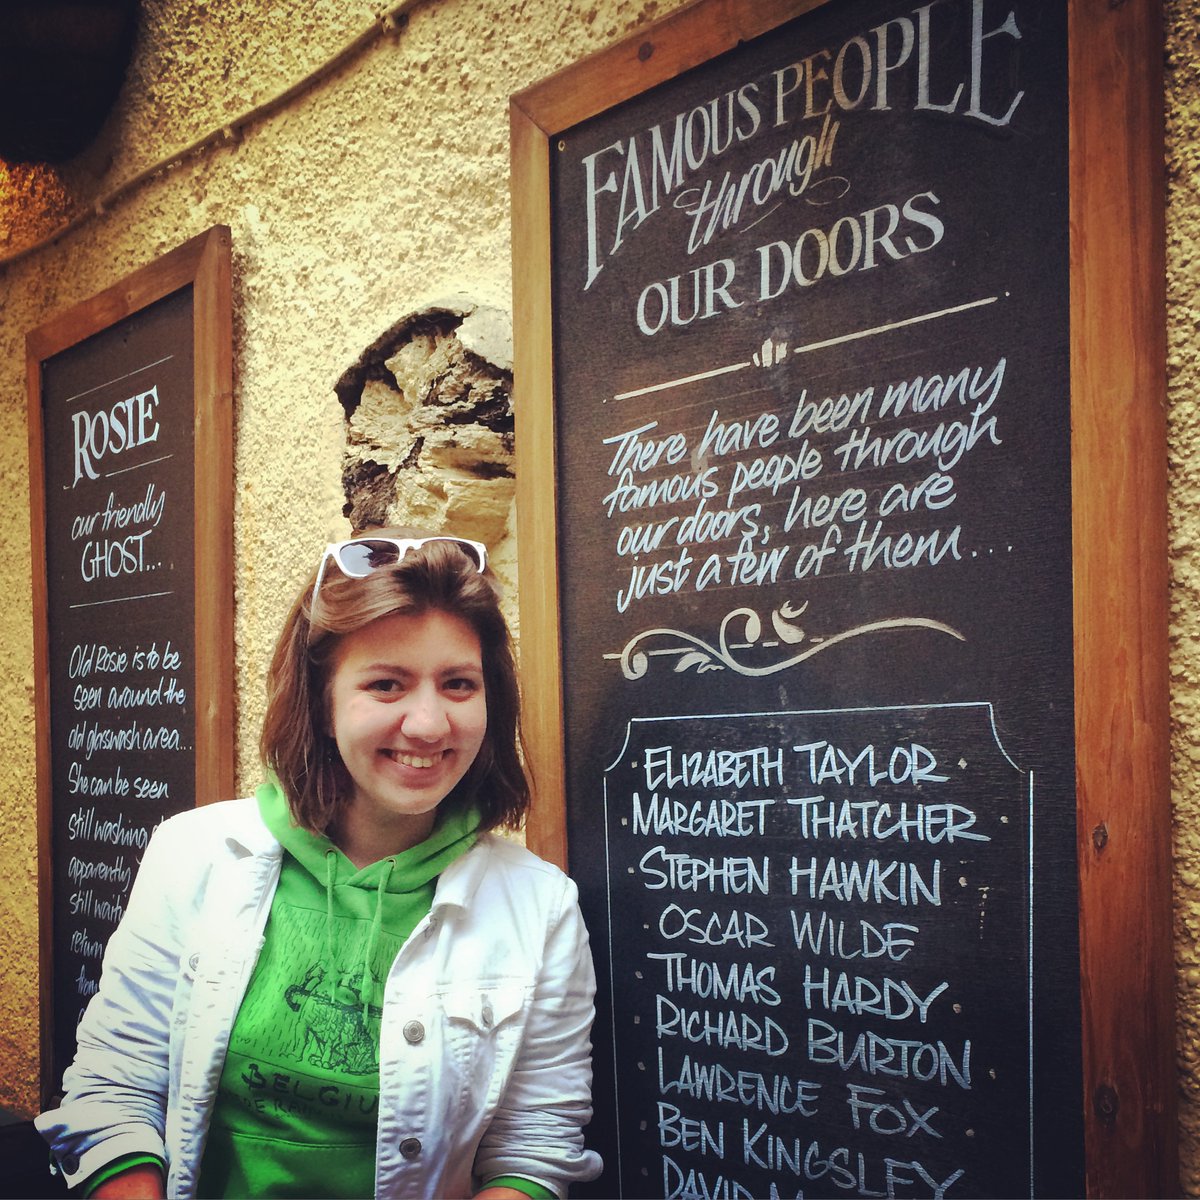 ROSIE
our friendly
GHOST...
Old Rosie is to be
seen around the
old glasswash area...
She can be seen
still washing
apparently
still
return
FAMOUS PEOPLE
through
OUR DOORS
There have been many
famous people through
our doors, here are
just a few of them...
ELIZABETH TAYLOR
MARGARET THATCHER
STEPHEN HAWKIN
OSCAR WILDE
THOMAS HARDY
RICHARD BURTON
LAWRENCE FOX
BEN KINGSLEY
DAVID
BELGIU